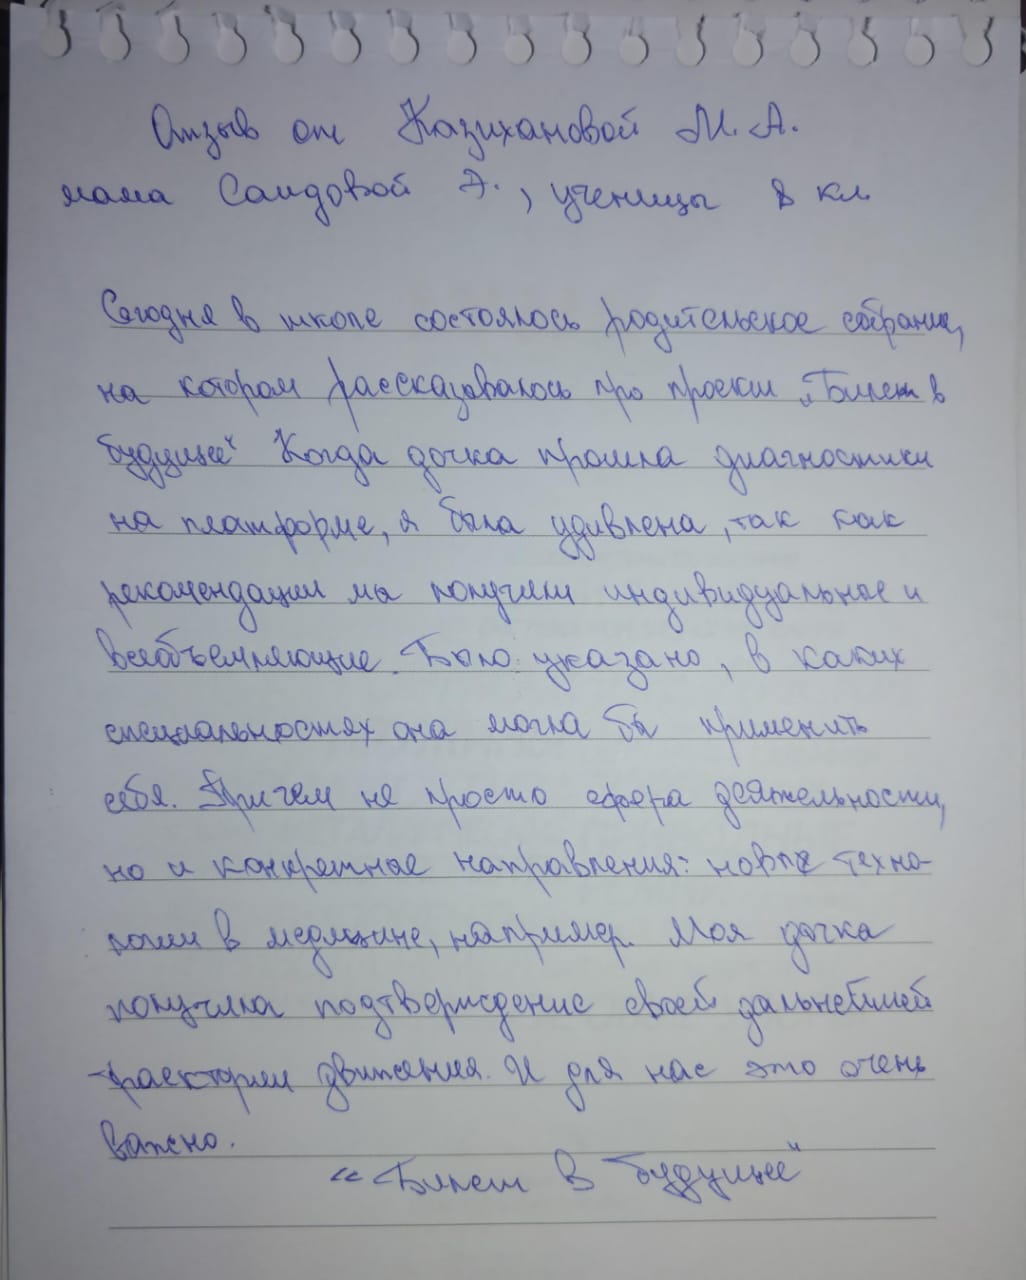 Отзыв от Казихановой М. А.
мама Саидовой Э., ученицы 8 кл.
Сегодня в школе состоялось родительское собрание,
на котором рассказывалось про проект „Билет в
будущее“ Когда дочка прошла диагностики
на платформе, я была удивлена, так как
рекомендации мы получили индивидуальное и
всеобъемляющие. Было указано, в каких
специальностях она могла бы применить
себя. Причем не просто сфера деятельности,
но и конкретные направления: новые техно-
логии в медицине, например. Моя дочка
получила подтверждение своей дальнейшей
траектории движения. И для нас это очень
важно.
„Билет в будущее“